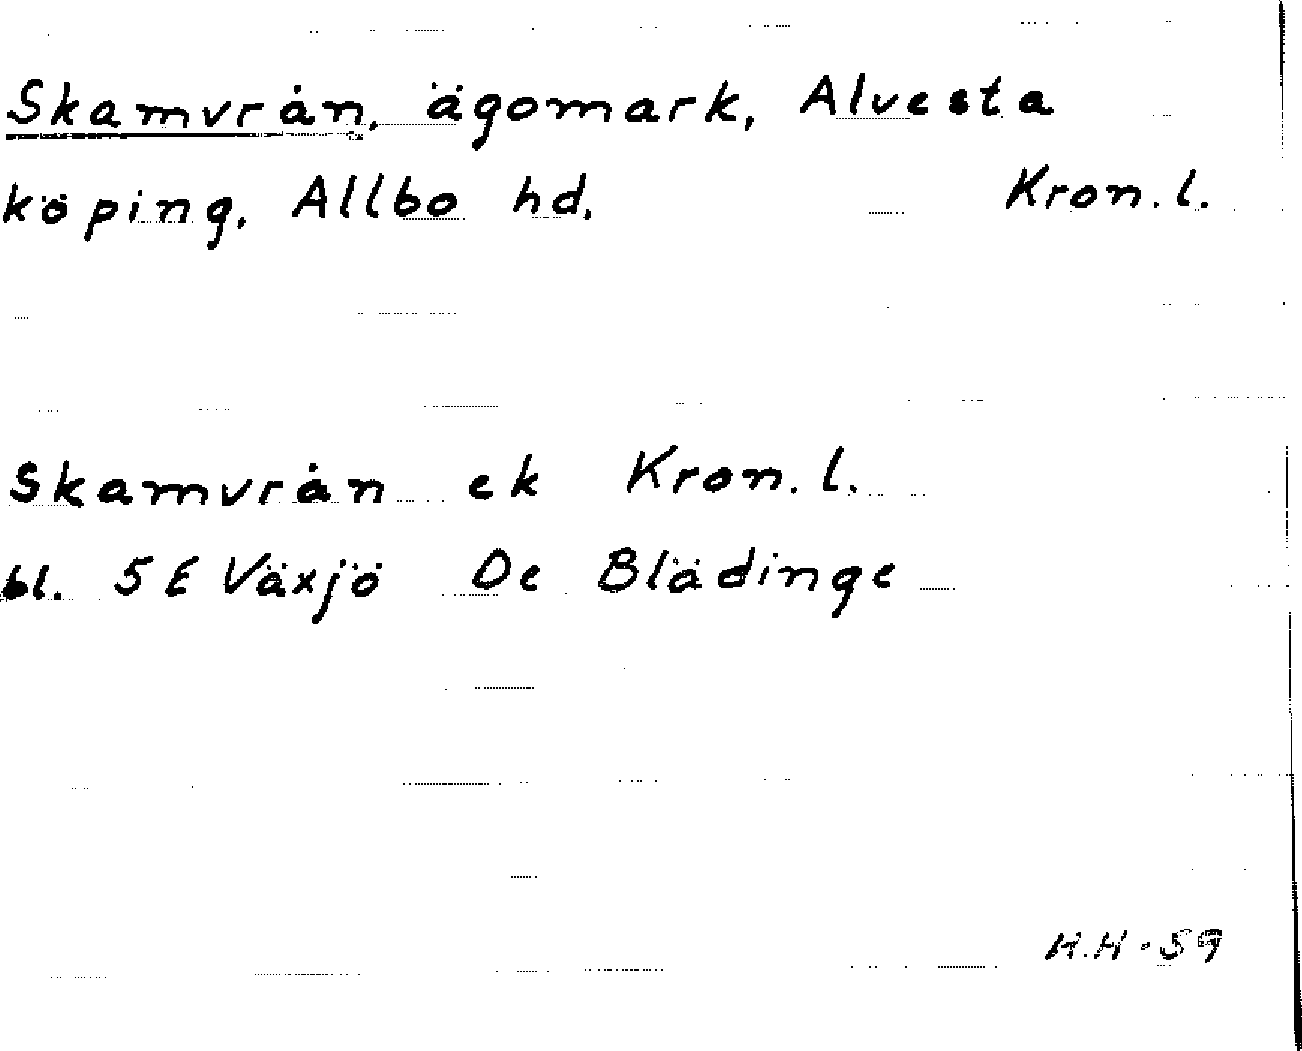 Skamvrån, ägomark, Alvesta
köping, Allbo hd, Kron.l.
Skamvrån ek Kron.l.
bl. 5E Växjö De Blädinge
H.H-59